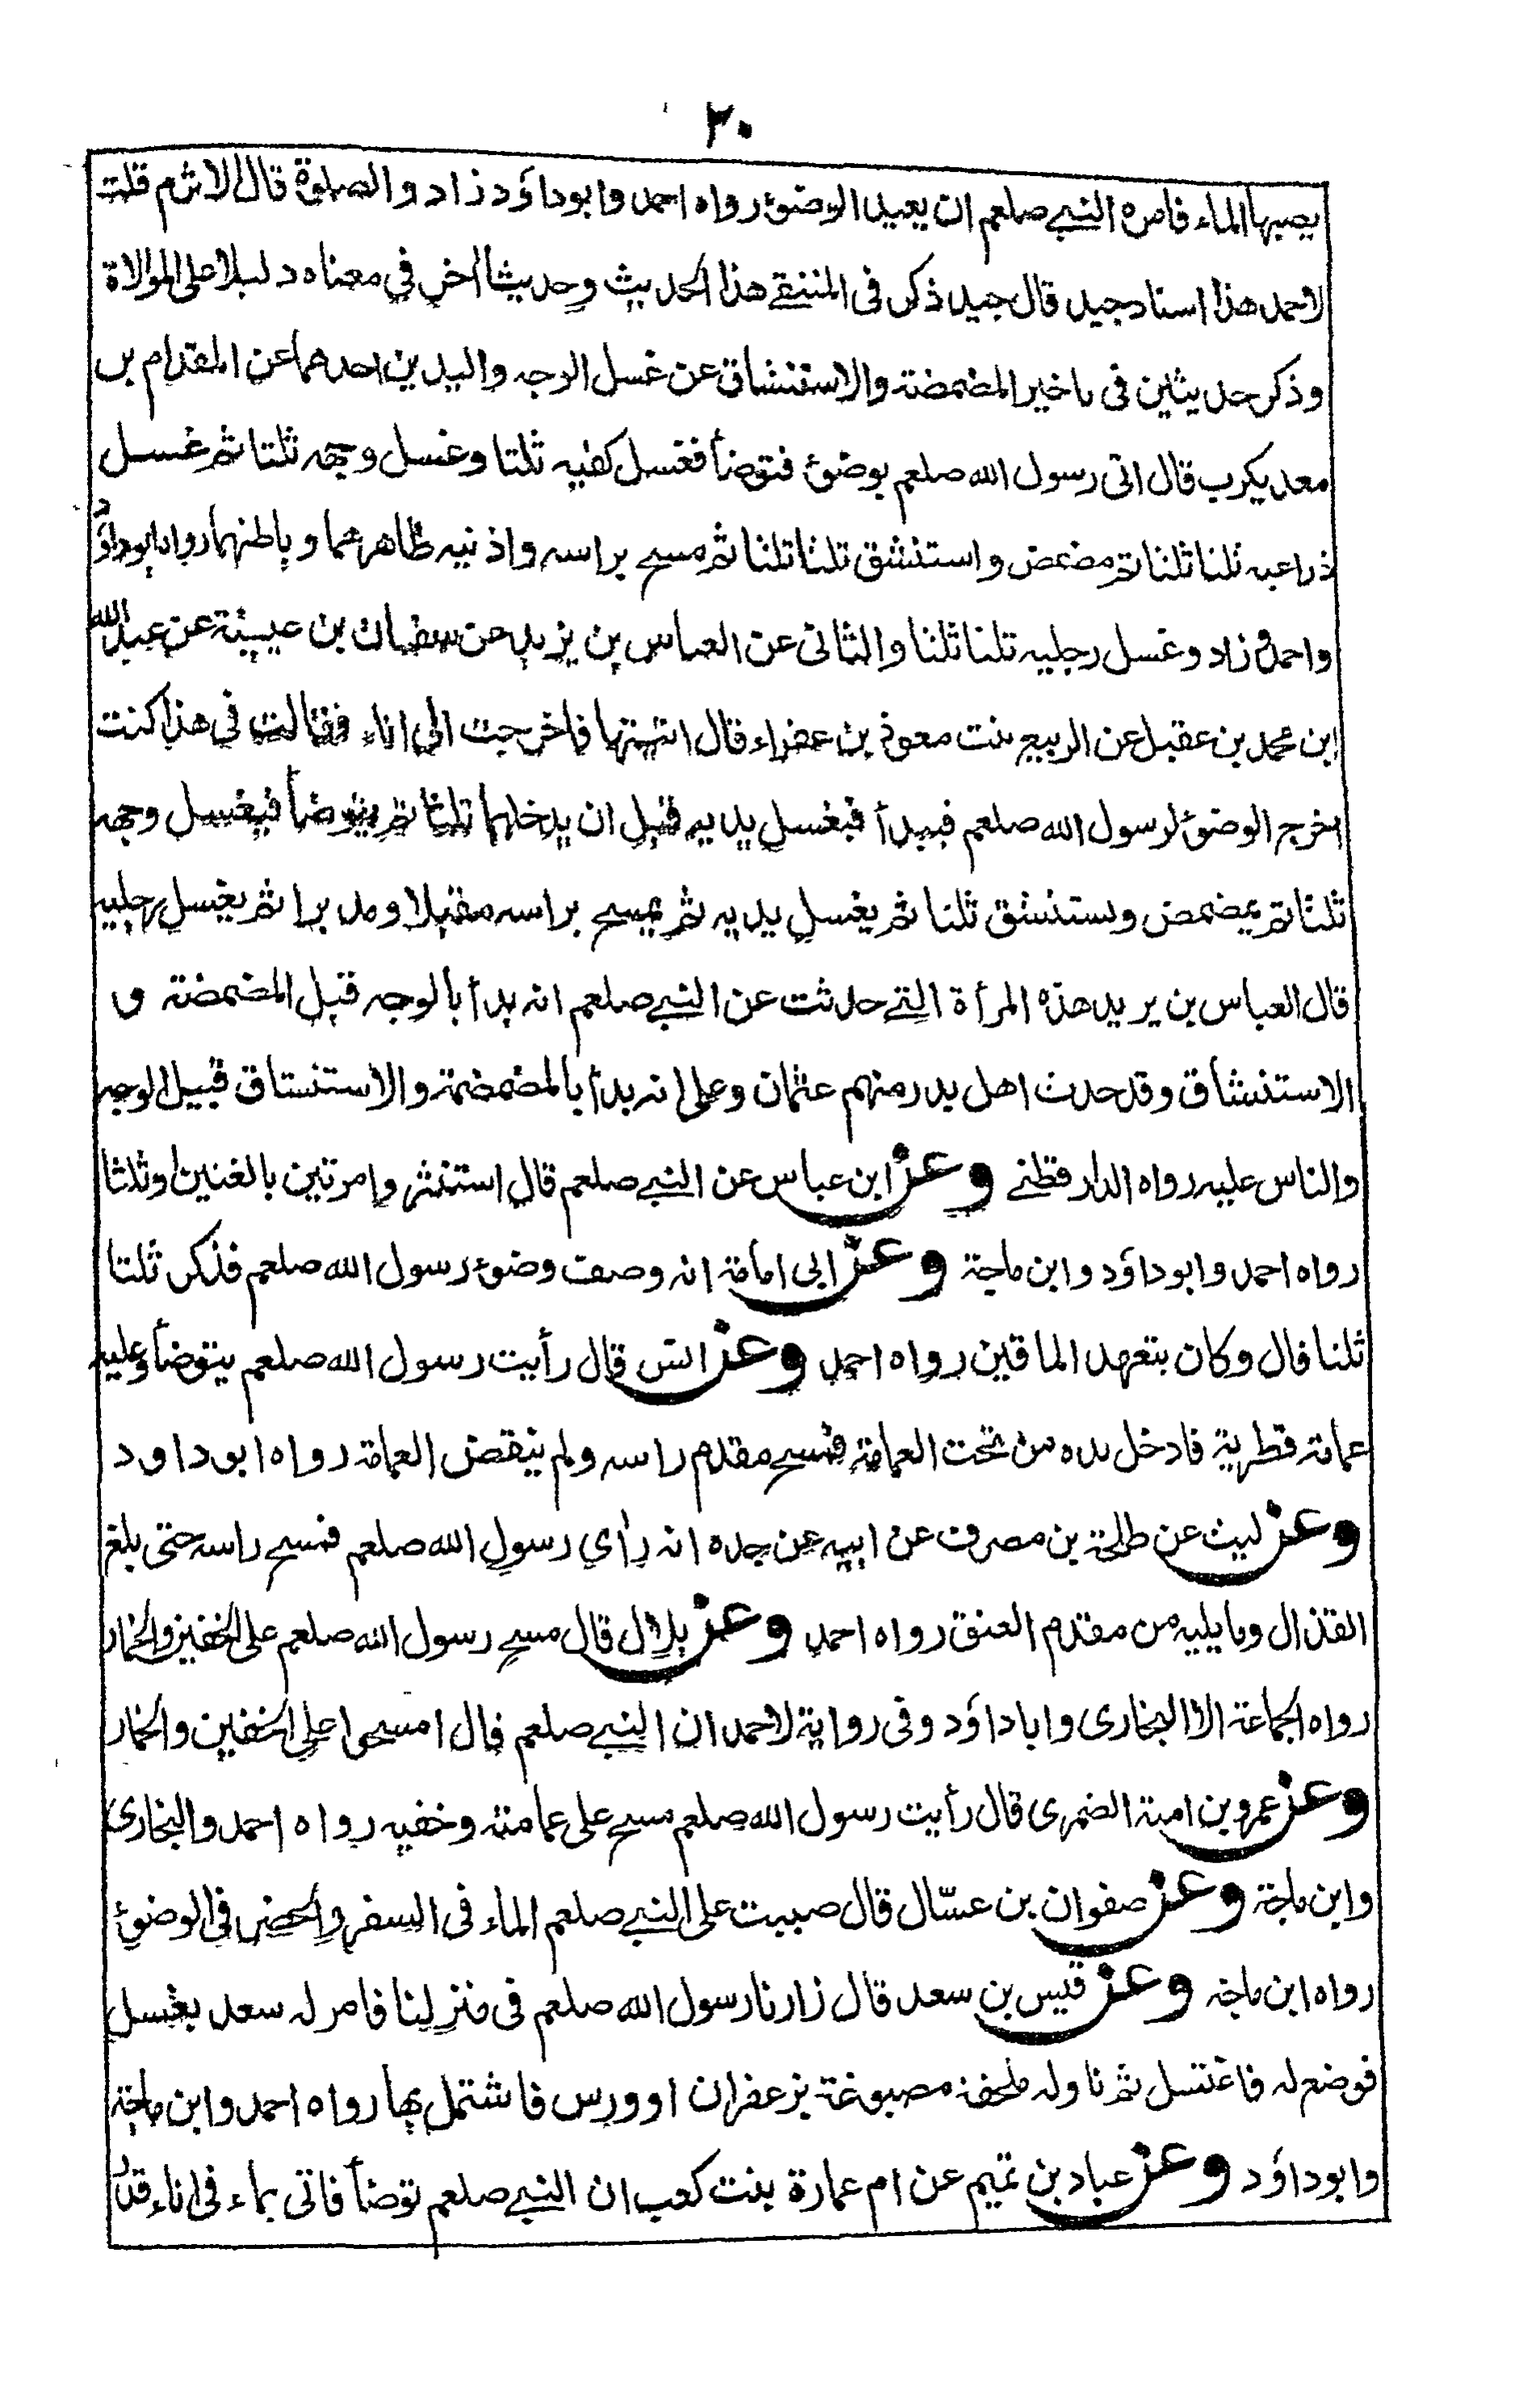 ٣٠
يصبها الماء فامره النبي صلعم ان يعيد الوضوء رواه احمد وابوداؤد زاد والصلوة قال الاثرم قلت
لاحمد هذا اسناد جيد قال جيد ذكر فى المنتقے هذا الحديث وحديثا اخر في معناه دليلا على الموالاة
وذكر حديثين فى تاخير المضمضة والاستنشاق عن غسل الوجه واليدين احدهما عن المقدام بن
معديكرب قال اتى رسول الله صلعم بوضوء فتوضأ فغسل كفيه ثلثا وغسل وجهه ثلثا ثم غسل
ذراعيه ثلثا ثلثا ثم مضمض واستنشق ثلثا ثلثا ثم مسح براسه واذنيه ظاهرهما وباطنهما رواه ابوداؤد
واحمد و زاد وغسل رجليه ثلثا ثلثا والثانى عن العباس بن يزيد عن سفيان بن عيينة عن عبد الله
ابن محمد بن عقيل عن الربيع بنت معوذ بن عفراء قال اتيتها فاخرجت الى اناء فقالت في هذا كنت
اخرج الوضوء لرسول الله صلعم فيبدأ فيغسل يديه قبل ان يدخلهما ثلثا ثم يتوضأ فيغسل وجهه
ثلثا ثم يمضمض ويستنشق ثلثا ثم يغسل يديه ثم يمسح براسه مقبلا ومدبرا ثم يغسل رجليه
قال العباس بن يزيد هذه المرأة التے حدثت عن النبے صلعم انه بدأ بالوجه قبل المضمضة و
الاستنشاق وقد حدث اهل بدر منهم عثمان وعلى انه بدأ بالمضمضة والاستنشاق قبل الوجه
والناس عليه رواه الدار قطنے وعن ابن عباس عن النبے صلعم قال استنثروا مرتين بالغتين او ثلثا
رواه احمد وابوداؤد وابن ماجة وعن ابى امامة انه وصف وضوء رسول الله صلعم فذكر ثلثا
ثلثا قال وكان يتعهد الماقين رواه احمد وعن انس قال رأيت رسول الله صلعم يتوضأ وعليه
عمامة قطرية فادخل يده من تحت العمامة فمسح مقدم راسه ولم ينقض العمامة رواه ابوداود
وعن ليث عن طلحة بن مصرف عن ابيه عن جده انه راى رسول الله صلعم فمسح راسه حتى بلغ
القذال وما يليه من مقدم العنق رواه احمد وعن بلال قال مسح رسول الله صلعم على الخفين والخمار
رواه الجماعة الا البخارى وابا داؤد وفى رواية لاحمد ان النبے صلعم قال امسحوا على الخفين والخمار
وعن عمرو بن امية الضمرى قال رأيت رسول الله صلعم مسح على عمامته وخفيه رواه احمد والبخارى
وابن ماجة وعن صفوان بن عسّال قال صببت على النبے صلعم الماء فى السفر والحضر فى الوضوء
رواه ابن ماجة وعن قيس بن سعد قال زارنا رسول الله صلعم فى منزلنا فامر له سعد بغسل
فوضع له فاغتسل ثم ناوله ملحفة مصبوغة بزعفران او ورس فاشتمل بها رواه احمد وابن ماجة
وابوداؤد وعن عباد بن تميم عن ام عمارة بنت كعب ان النبے صلعم توضأ فاتى بماء فى اناء قدر